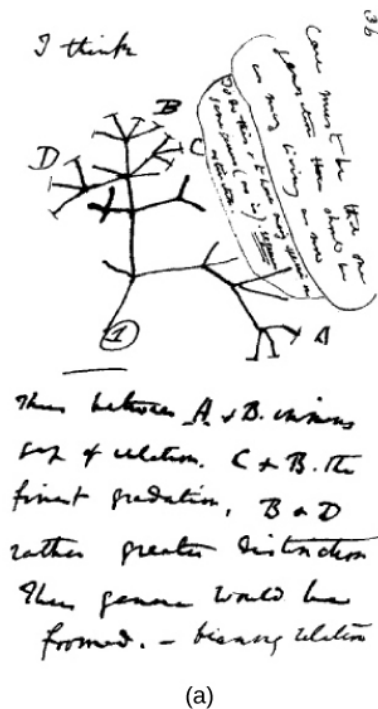 36
I think
B
C
D
A
1
Case must be that one
generation then should be
as many living as now
To do this & to have many species in
same genus (as is). requires
extinction.
Thus between A & B. immens
gap of relation. C & B. the
finest gradation, B & D
rather greater distinction
Thus genera would be
formed. — bearing relation
(a)